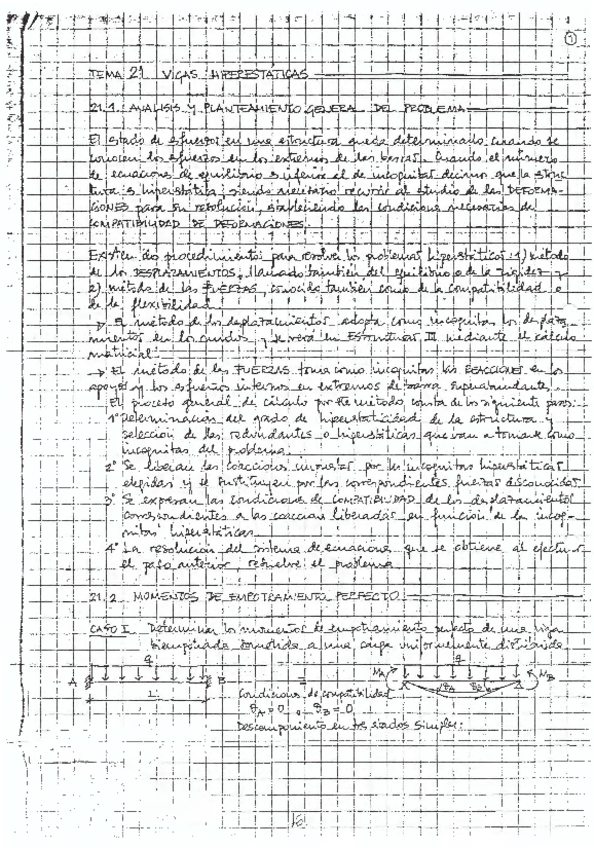 1
TEMA 21 VIGAS HIPERESTATICAS
21.1. ANALISIS Y PLANTEAMIENTO GENERAL DEL PROBLEMA
El estado de esfuerzos en una estructura queda determinado cuando se
conocen los esfuerzos en los extremos de las barras. Cuando el número
de ecuaciones de equilibrio es inferior al de incognitas decimos que la estruc
tura es hiperstática, siendo necesario recurrir al estudio de las DEFORMA-
CIONES para su resolución, estableciendo las condiciones necesarias de
COMPATIBILIDAD DE DEFORMACIONES.
Existen dos procedimientos para resolver los problemas hiperstáticos: 1) método
de los DESPLAZAMIENTOS, llamado también del equilibrio o de la rigidez y
2) método de las FUERZAS, conocido también como de la compatibilidad o
de la flexibilidad.
El método de los desplazamientos adopta como incognitas los despla
mientos en los nudos y se verá en ESTRUCTURAS III mediante el cálculo
matricial.
El método de las FUERZAS toma como incognitas las REACCIONES en los
apoyos y los esfuerzos internos en extremos de barra superabundantes.
El proceso general de cálculo por este método consta de los siguientes pasos:
1º Determinación del grado de hiperstaticidad de la estructura y
selección de las redundantes o hiperstáticas que van a tomarse como
incognitas del problema.
2º Se liberan las coacciones impuestas por las incognitas hiperstáticas
elegidas y se sustituyen por las correspondientes fuerzas desconocidas
3º Se expresan las condiciones de COMPATIBILIDAD de los desplazamientos
correspondientes a las coacciones liberadas en función de las incog-
nitas hiperstáticas
4º La resolución del sistema de ecuaciones que se obtiene al efectuar
el paso anterior resuelve el problema
21.2. MOMENTOS DE EMPOTRAMIENTO PERFECTO
CASO I Determinar los momentos de empotramiento perfecto de una viga
biempotrada sometida a una carga uniformemente distribuida
q
A
B
L
=
q
MA
θA
θB
MB
Condiciones de compatibilidad
θA = 0, θB = 0
Descomponiendo en tres estados simples: